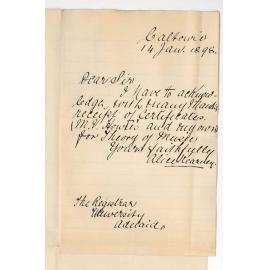 Caltowie
14 Jan. 1898.
Dear Sir
I have to acknow-
ledge with many thanks
receipt of Certificates.
and my own
for Theory of Music
Yours faithfully
Alice Kearney.
The Registrar
University
Adelaide